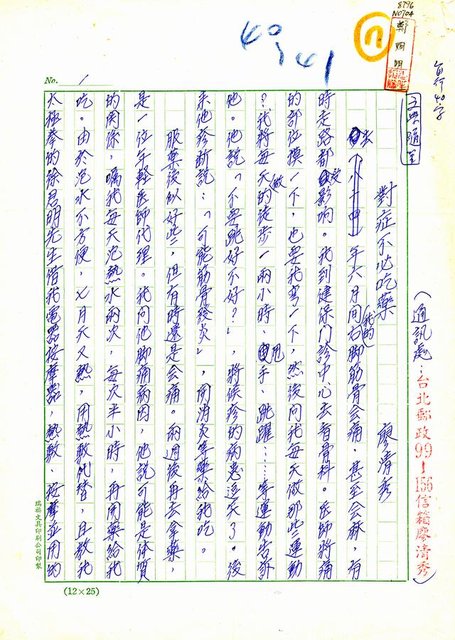 8796
N0704
鄭烱明
7
40
41
每行40字
No. 1
(通訊處：台北郵政99—156信箱廖清秀)
對症不必吃藥
廖清秀
去年六月間我的右脚筋骨會痛，甚至會麻，有
時走路都受影響。我到建保門診中心去看骨科。医師將痛
的部位摸一下，也要我彎一下，然後问我每天做那些運動
？我將每天的徒步一兩小時、甩手、跳躍……等運動告訴
他。他說「不要跳好不好？」，將候診的病患逗笑了。後
來他診斷說：「可能筋骨發炎」，開消炎等藥給我吃。
服藥後似好些，但有時還是会痛。兩週後再去拿藥，
是一位年輕医師代理。我问他脚痛病因，他說可能是体質
的関係，囑我每天泡熱水兩次，每次半小時，再開藥給我
吃。由於泡水不方便，七月天又熱，用熱敷代替，且教我
太極拳的徐君明先生借我電器按摩器，熱敷、按摩並用的
瑞裕文具印刷公司印製
(12×25)